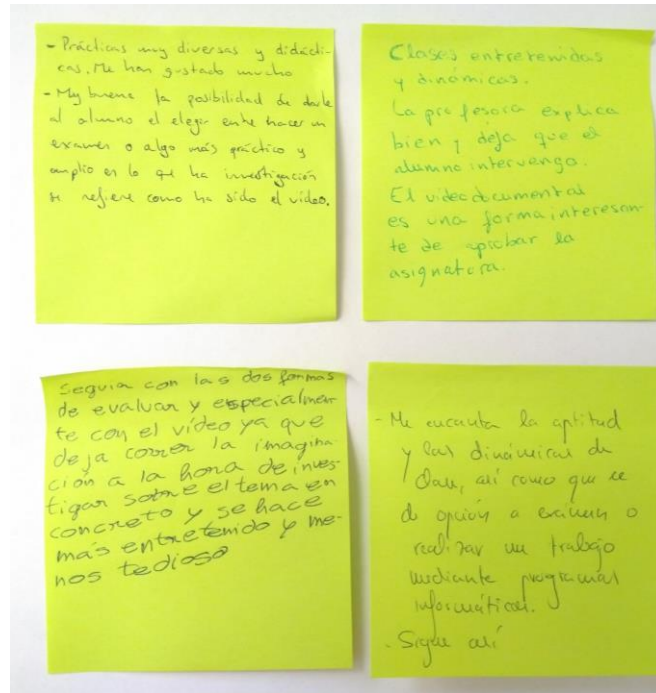 - Prácticas muy diversas y didácti-
cas. Me han gustado mucho
- Muy buena la posibilidad de darle
al alumno el elegir entre hacer un
examen o algo más práctico y
amplio en lo que ha investigación
se refiere como ha sido el vídeo.
Clases entretenidas
y dinámicas.
La profesora explica
bien y deja que el
alumno intervenga.
El videodocumental
es una forma interesan-
te de aprobar la
asignatura.
Seguiría con las dos formas
de evaluar y especialmen-
te con el vídeo ya que
deja correr la imagina-
ción a la hora de inves-
tigar sobre el tema en
concreto y se hace
más entretenido y me-
nos tedioso
- Me encanta la aptitud
y las dinámicas de
clase, así como que se
de opción a examen o
realizar un trabajo
mediante programas
informáticos.
- Sigue así